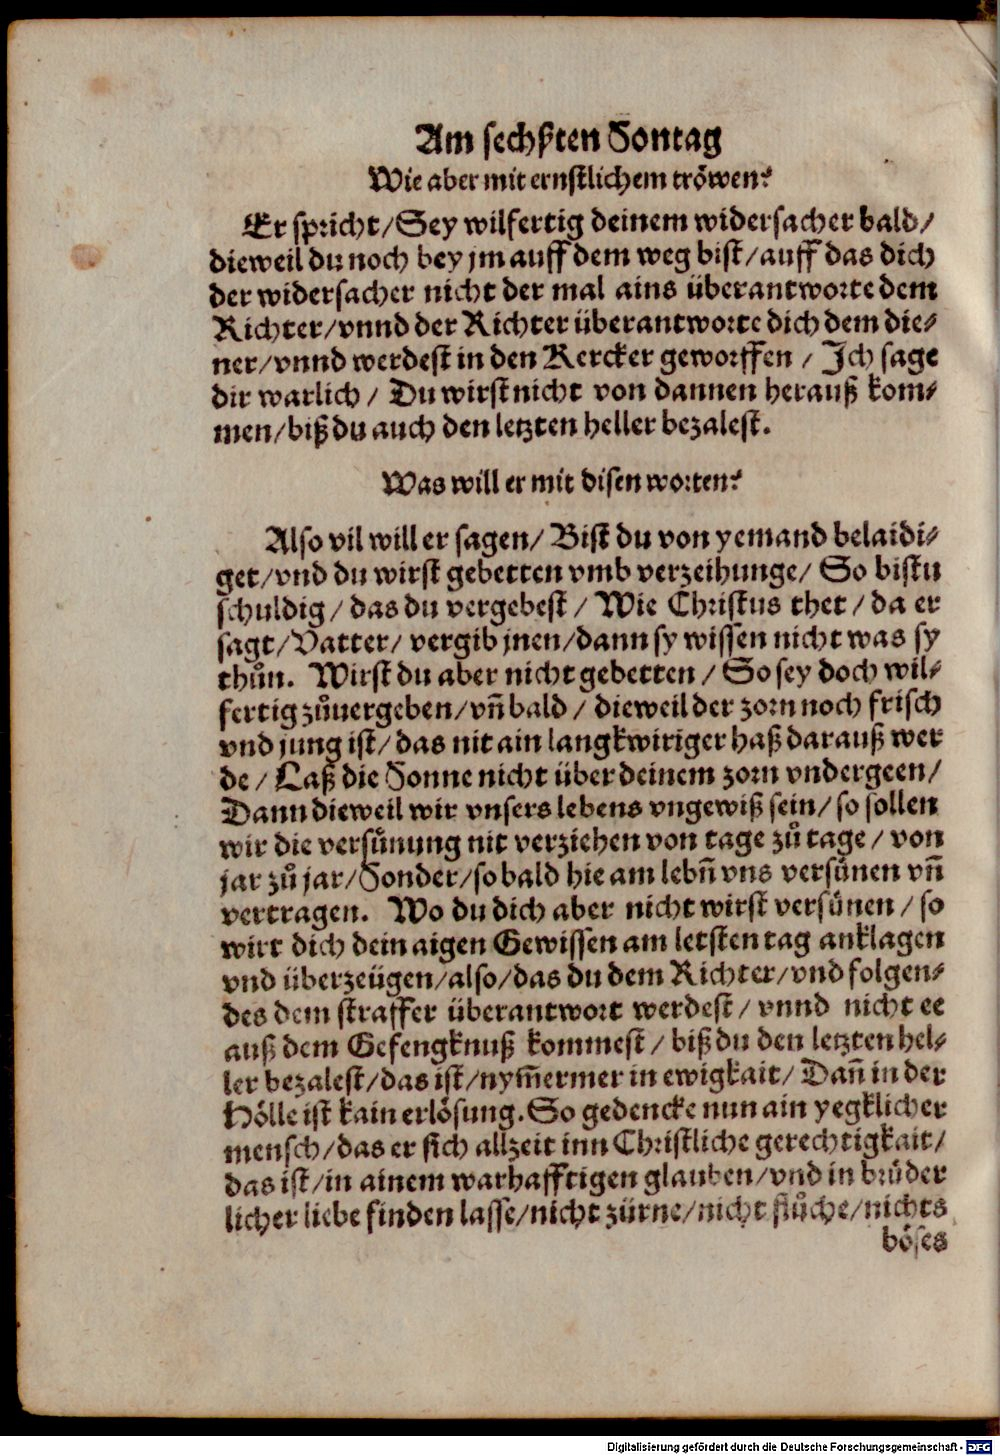 Am sechſten Sontag
Wie aber mit ernſtlichem tröwen?
Er ſpꝛicht/Sey wilfertig deinem widerſacher bald/
dieweil du noch bey jm auff dem weg biſt/auff das dich
der widerſacher nicht der mal ains überantwoꝛte dem
Richter/vnnd der Richter überantwoꝛte dich dem die⸗
ner/vnnd werdeſt in den Kercker gewoꝛffen / Ich ſage
dir warlich / Du wirſt nicht von dannen herauß kom⸗
men/biß du auch den letzten heller bezaleſt.
Was will er mit diſen woꝛten?
Alſo vil will er ſagen/ Biſt du von yemand belaidi⸗
get/vnd du wirſt gebetten vmb verzeihunge/ So biſtu
ſchuldig / das du vergebeſt / Wie Chꝛiſtus thet / da er
ſagt/Vatter/ vergib jnen/dann ſy wiſſen nicht was ſy
thůn. Wirſt du aber nicht gebetten / So ſey doch wil⸗
fertig zůuergeben/vñ bald / dieweil der zoꝛn noch friſch
vnd jung iſt/das nit ain langkwiriger haß darauß wer
de / Laß die Sonne nicht über deinem zoꝛn vndergeen/
Dann dieweil wir vnſers lebens vngewiß ſein/ ſo ſollen
wir die verſünung nit verziehen von tage zů tage / von
jar zů jar/Sonder/ſo bald hie am lebñ vns verſünen vñ
vertragen. Wo du dich aber nicht wirſt verſünen / ſo
wirt dich dein aigen Gewiſſen am letſten tag anklagen
vnd überzeügen/alſo/das du dem Richter/vnd folgen⸗
des dem ſtraffer überantwoꝛt werdeſt/ vnnd nicht ee
auß dem Gefengknuß kommeſt / biß du den letzten hel⸗
ler bezaleſt/das iſt/nym̃ermer in ewigkait/ Dañ in der
Hölle iſt kain erlöſung. So gedencke nun ain yegklicher
menſch/das er ſich allzeit inn Chꝛiſtliche gerechtigkait/
das iſt/in ainem warhafftigen glauben/vnd in bꝛüder
licher liebe finden laſſe/nicht zürne/nicht flůche/nichts
böſes
Digitalisierung gefördert durch die Deutsche Forschungsgemeinschaft - DFG